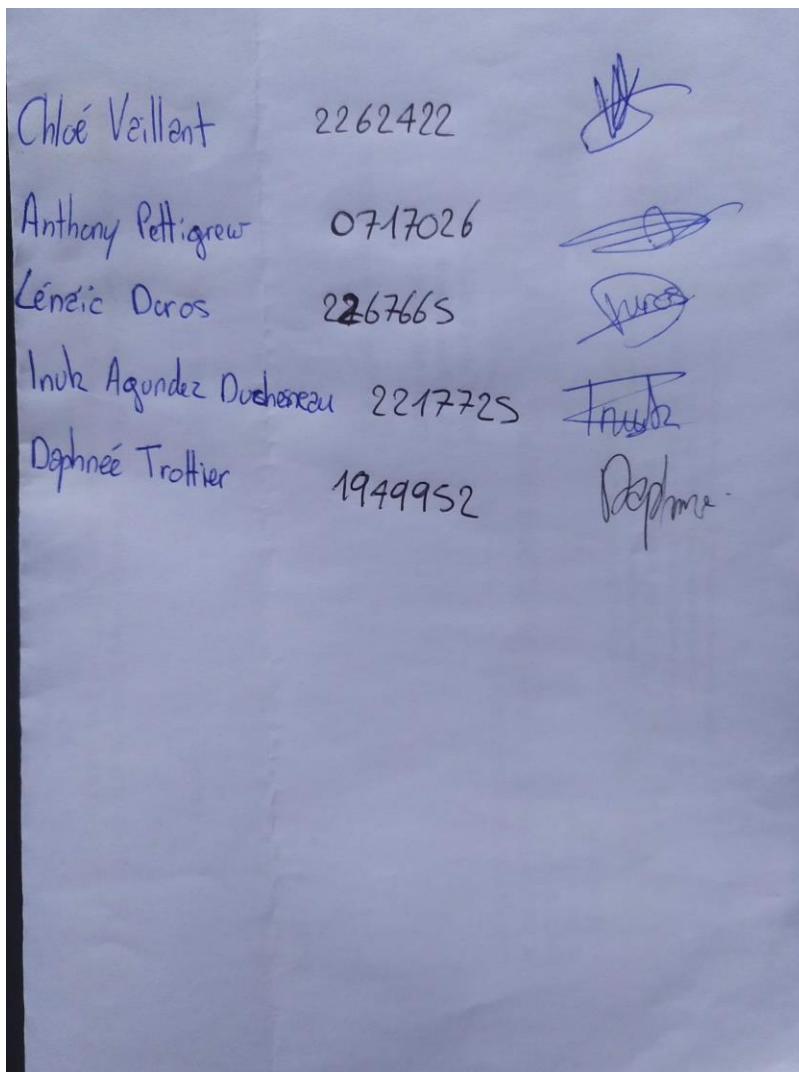 Chloé Vaillant 2262422
Anthony Pettigrew 0717026
Lénaïc Duros 2267665
Inuk Agundez Ducheneau 2217725 Inuk
Daphneé Trottier 1949952 Daphne